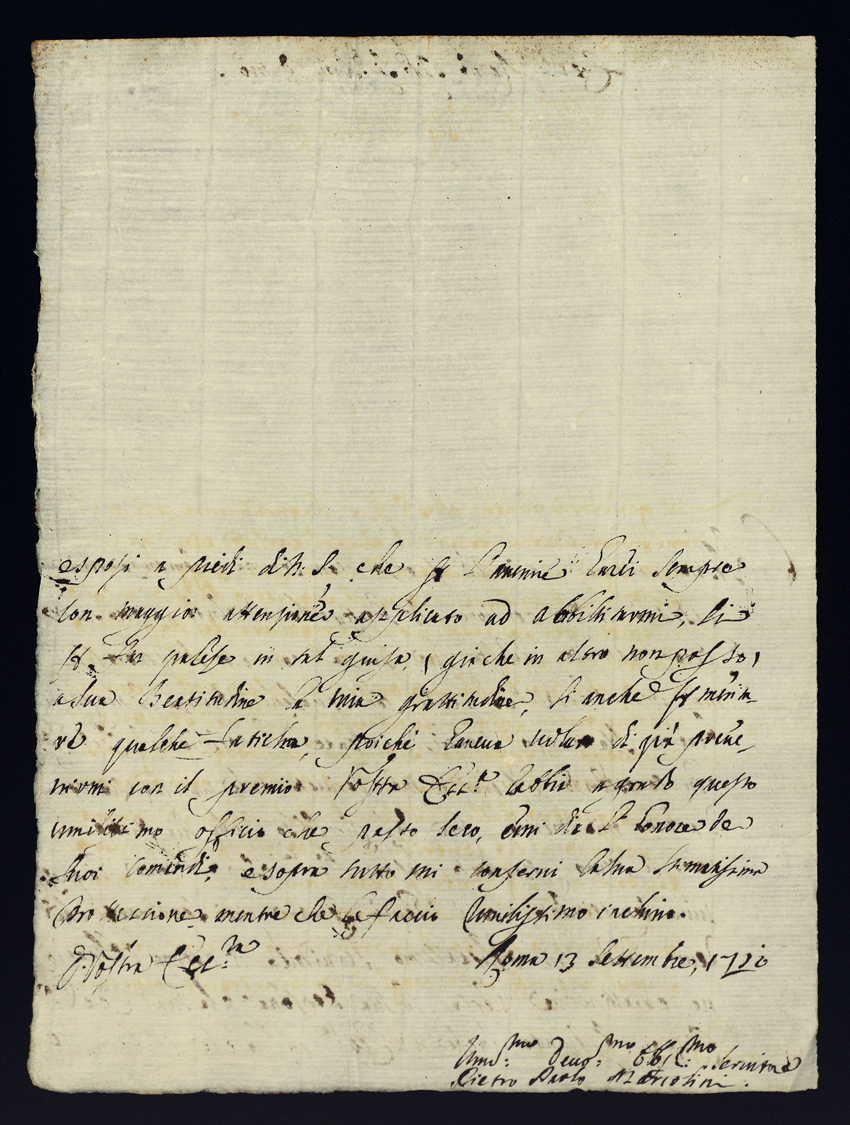 esposi a piedi di N. S. che per l'avvenire sarei sempre
con maggior attenzione applicato ad abbilitarmi, si
per far palese in tal guisa, (giache in altro non posso)
a sua Beatitudine la mia grattitudine, si anche per
qualche faticha, poiche di già preve-
nirmi con il premio Vostra Ecc.a abbia a grado questo
umilissimo officio che passo seco, e mi dia l'onore de
suoi comandi, e sopra tutto mi conservi la sua stimatissima
Protezzione, mentre che le faccio umilissimo inchino.
Di Vostra Ecc.za Roma 13 Settembre, 1720
Umi.mo Devo.mo Obbl.mo Servitore
Pietro Paolo Marcolini.